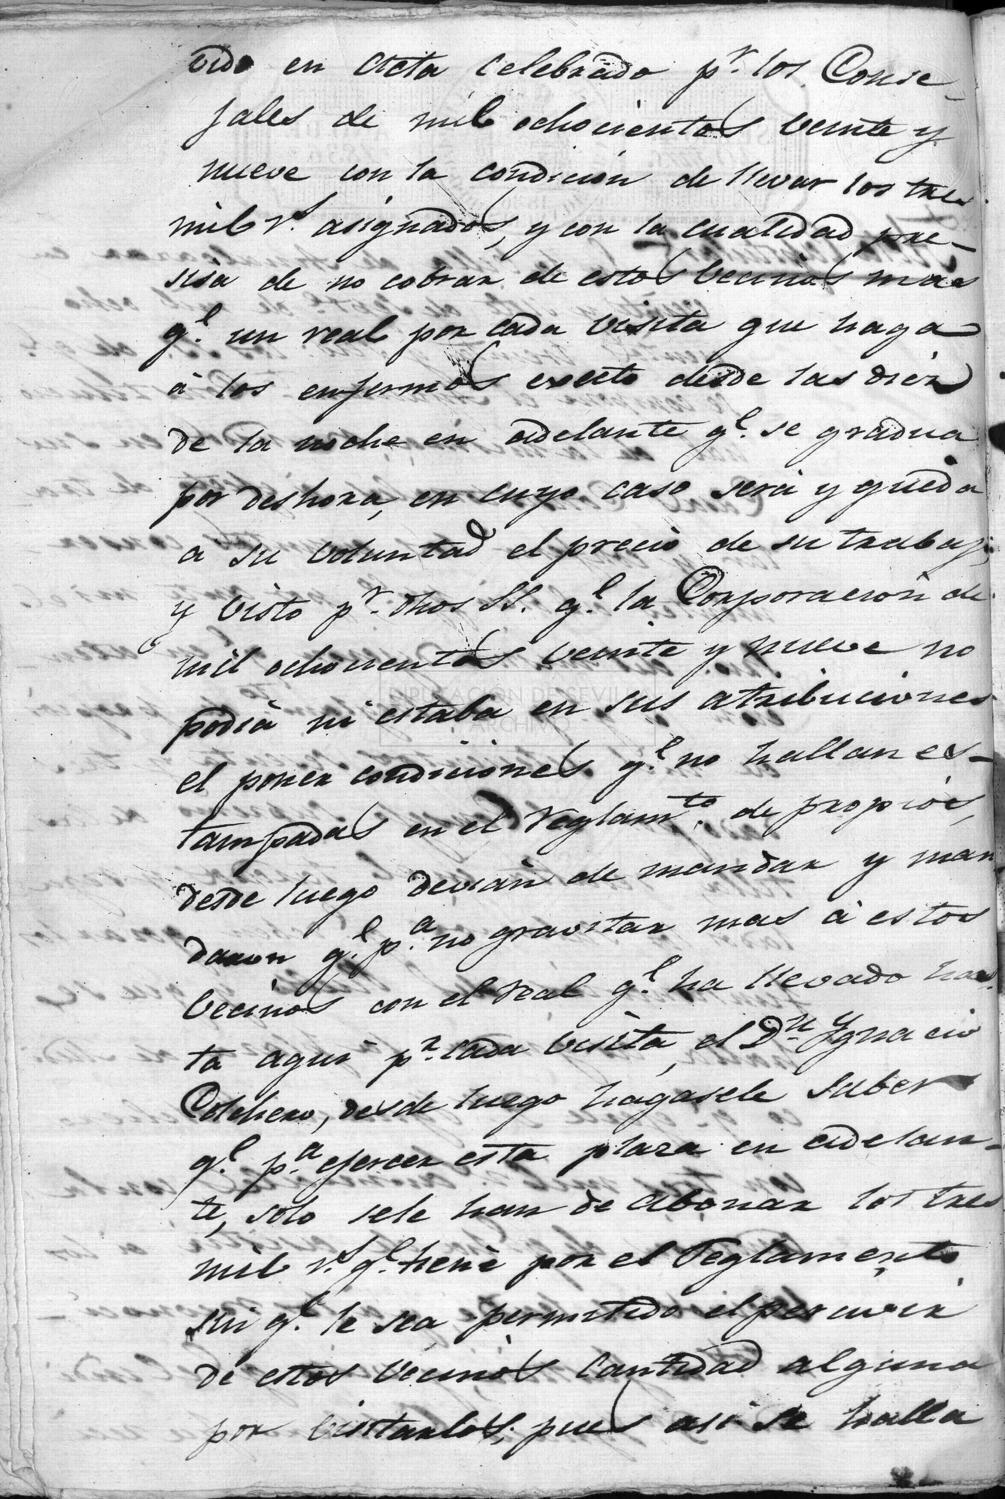 vido en Acta celebrado pr. los Conse-
jales de mil ochocientos veinte y
nueve con la condicion de llevar los tres
mil rs. asignados, y con la cualidad pre-
sisa de no cobrar de estos becinos mas
qe. un real por cada visita que haga
á los enfermos, exsecto desde las diez
de la noche en adelante qe. se gradua
por deshora, en cuyo caso será y queda
a su voluntad el precio de su trabajo,
y visto pr. dhos SS. qe. la Corporacion de
mil ochocientos veinte y nueve no
podia ni estaba en sus atribuciones
el poner condiciones qe. no hallan es-
tampadas en el Reglamto. de propios,
desde luego devian de mandar y man
daron qe. pa. no gravitar mas á estos
becinos con el real qe. ha llevado has
ta aqui pr. cada visita, el Dn. Ygnacio
Colchero, desde luego hagasele saber
qe. pa. ejercer esta plaza en adelan-
te, solo sele han de abonar los tres
mil rs. qe. tiene por el Reglamento
sin qe. le sea permitido el percivir
de estos becinos cantidad alguna
por visitarlos, pues asi se halla
DIPUTACION DE SEVILLA
ARCHIVO